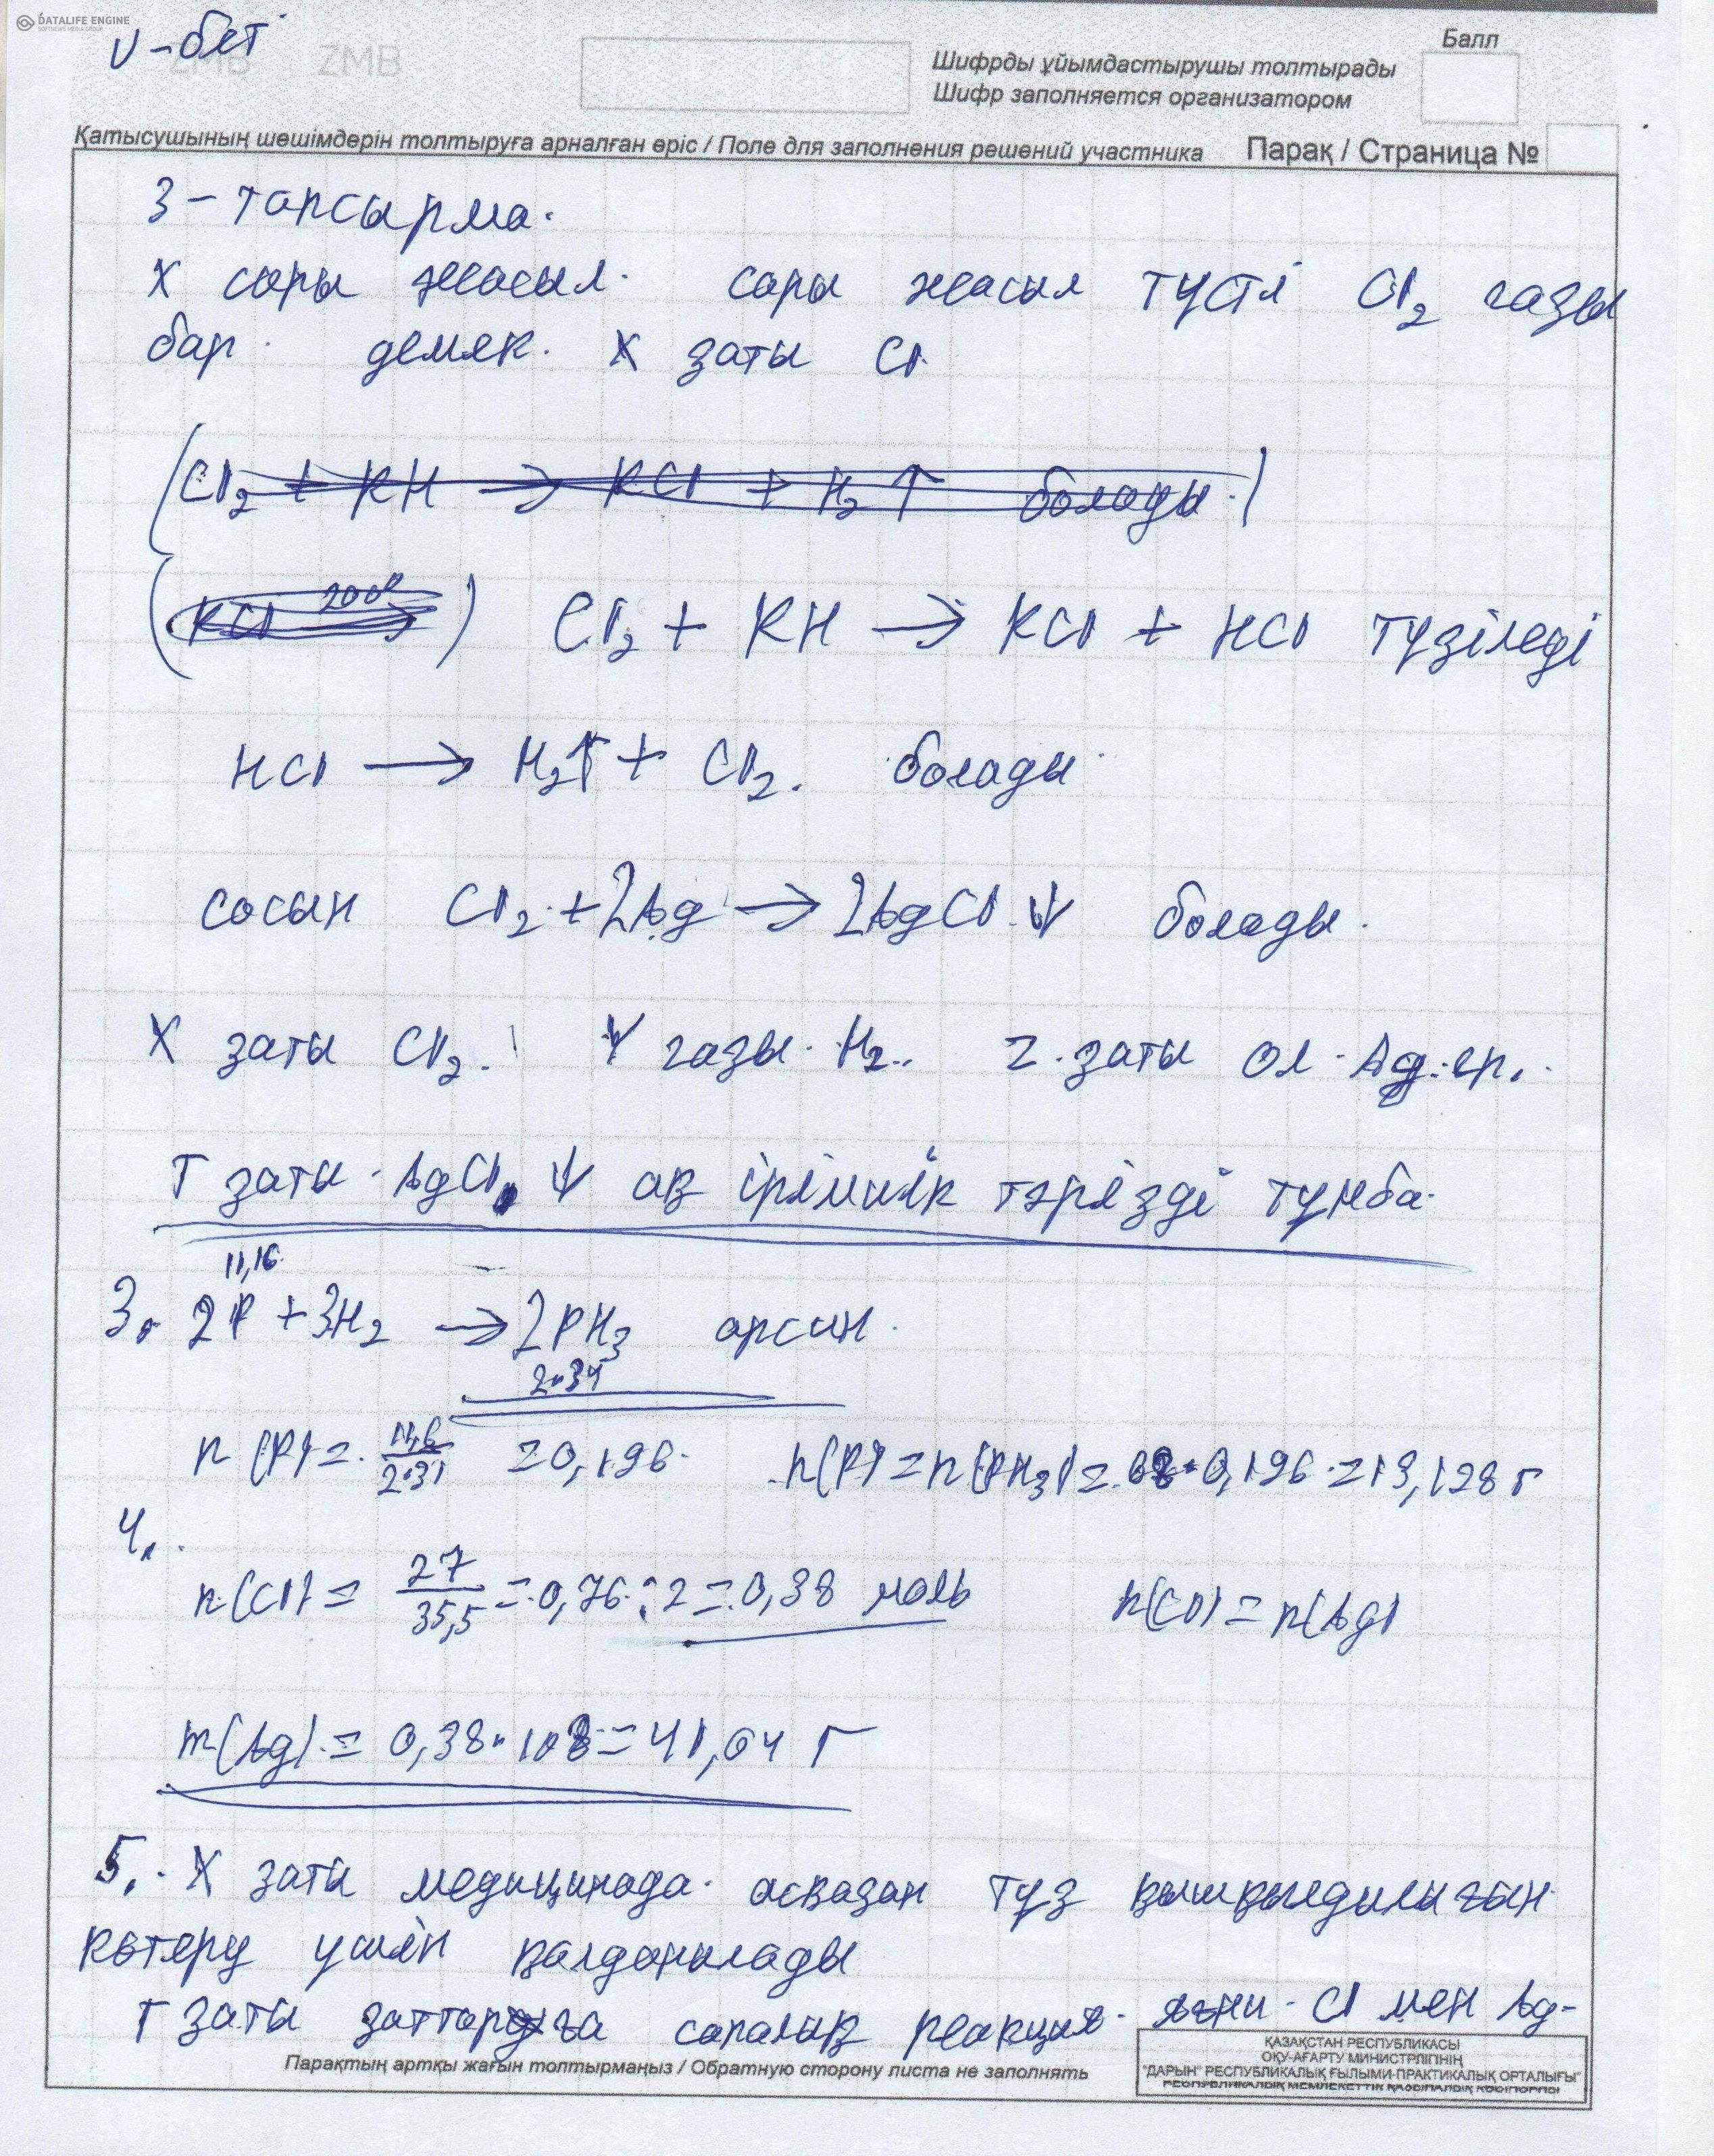 DATALIFE ENGINE
SOFTNEWS MEDIA GROUP
V-бет
ZMB ZMB
Балл
Шифрды ұйымдастырушы толтырады
Шифр заполняется организатором
Қатысушының шешімдерін толтыруға арналған өріс / Поле для заполнения решений участника Парақ / Страница №
3-тапсырма.
X сары жасыл. сары жасыл түсті Cl₂ газы
бар. демек. X заты Cl.
(Cl₂ + KH → KCl + H₂↑ болады.)
(KCl 200° →) Cl₂ + KH → KCl + HCl түзіледі
HCl → H₂↑ + Cl₂. болады.
сосын Cl₂ + 2Ag → 2AgCl ↓ болады.
X заты Cl₂. Y газы. H₂.. Z. заты ол. Ag.
T заты. AgCl ↓ ақ ірімшік тәрізді тұнба.
11,16
3. 2P + 3H₂ → 2PH₃ арсин.
2·34
n(P) = 11,6/2·31 = 0,196. n(P) = n(PH₃) = 68·0,196 = 13,128 г
4.
n(Cl) = 27/35,5 = 0,76:2 = 0,38 моль n(Cl) = n(Ag)
m(Ag) = 0,38·108 = 41,04 г
5. X заты медицинада асқазан тұз қышқылдылығын
көтеру үшін қолданылады
T заты заттарға сапалық реакция. яғни. Cl мен Ag-
Парақтың артқы жағын толтырмаңыз / Обратную сторону листа не заполнять
ҚАЗАҚСТАН РЕСПУБЛИКАСЫ
ОҚУ-АҒАРТУ МИНИСТРЛІГІНІҢ
"ДАРЫН" РЕСПУБЛИКАЛЫҚ ҒЫЛЫМИ-ПРАКТИКАЛЫҚ ОРТАЛЫҒЫ"
РЕСПУБЛИКАЛЫҚ МЕМЛЕКЕТТІК ҚАЗЫНАЛЫҚ КӘСІПОРНЫ